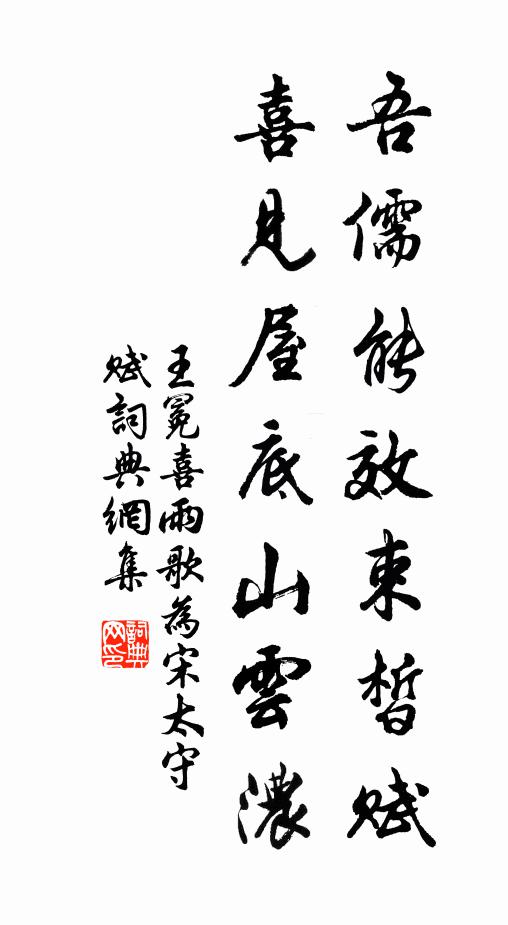 吾儒能效束皙賦
喜見屋底山雲濃
王冕喜雨歌為宋太守
賦詞典網集
詞典
网印